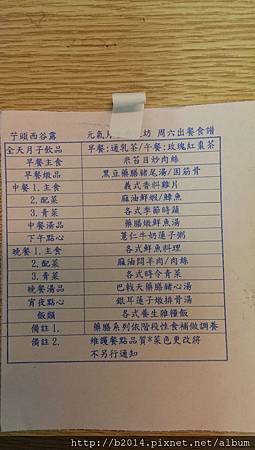 芋頭西谷露 元氣月 坊 周六出餐食譜
全天月子飲品 早餐:通乳茶/午餐:玫瑰紅棗茶
早餐主食 米苔目炒肉絲
早餐燉品 黑豆藥膳豬尾湯/固筋骨
中餐1.主食 義式香料雞片
2.配菜 麻油鮮蝦/鱆魚
3.青菜 各式季節時蔬
中餐湯品 藥膳燉鮮魚湯
下午點心 薏仁牛奶蓮子粥
晚餐1.主食 各式鮮魚料理
2.配菜 麻油悶羊肉/肉絲
3.青菜 各式時令青菜
晚餐湯品 巴戟天藥膳豬心湯
宵夜點心 銀耳蓮子燉排骨湯
飯類 各式養生雜糧飯
備註1. 藥膳系列依階段性食補做調養
備註2. 維護餐點品質*菜色更改將
不另行通知
http://b2014.pixnet.net/album/